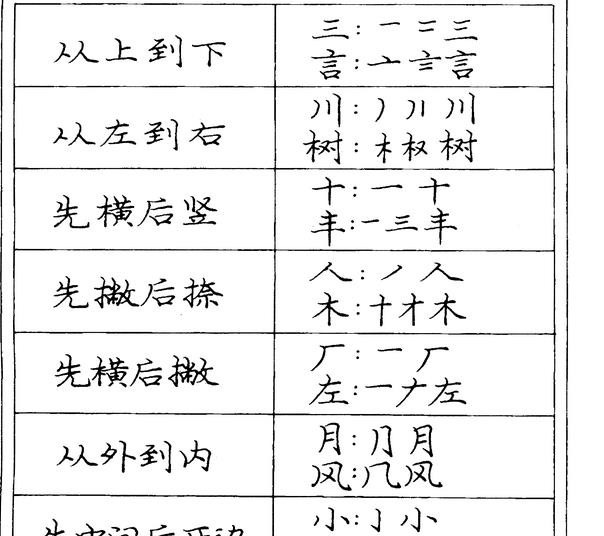 从上到下
三：一二三
言：亠亖言
从左到右
川：丿丿丨川
树：木权树
先横后竖
十：一十
丰：一三丰
先撇后捺
人：丿人
木：十才木
先横后撇
厂：一厂
左：一𠂇左
从外到内
月：⺆月
风：几风
小：亅小